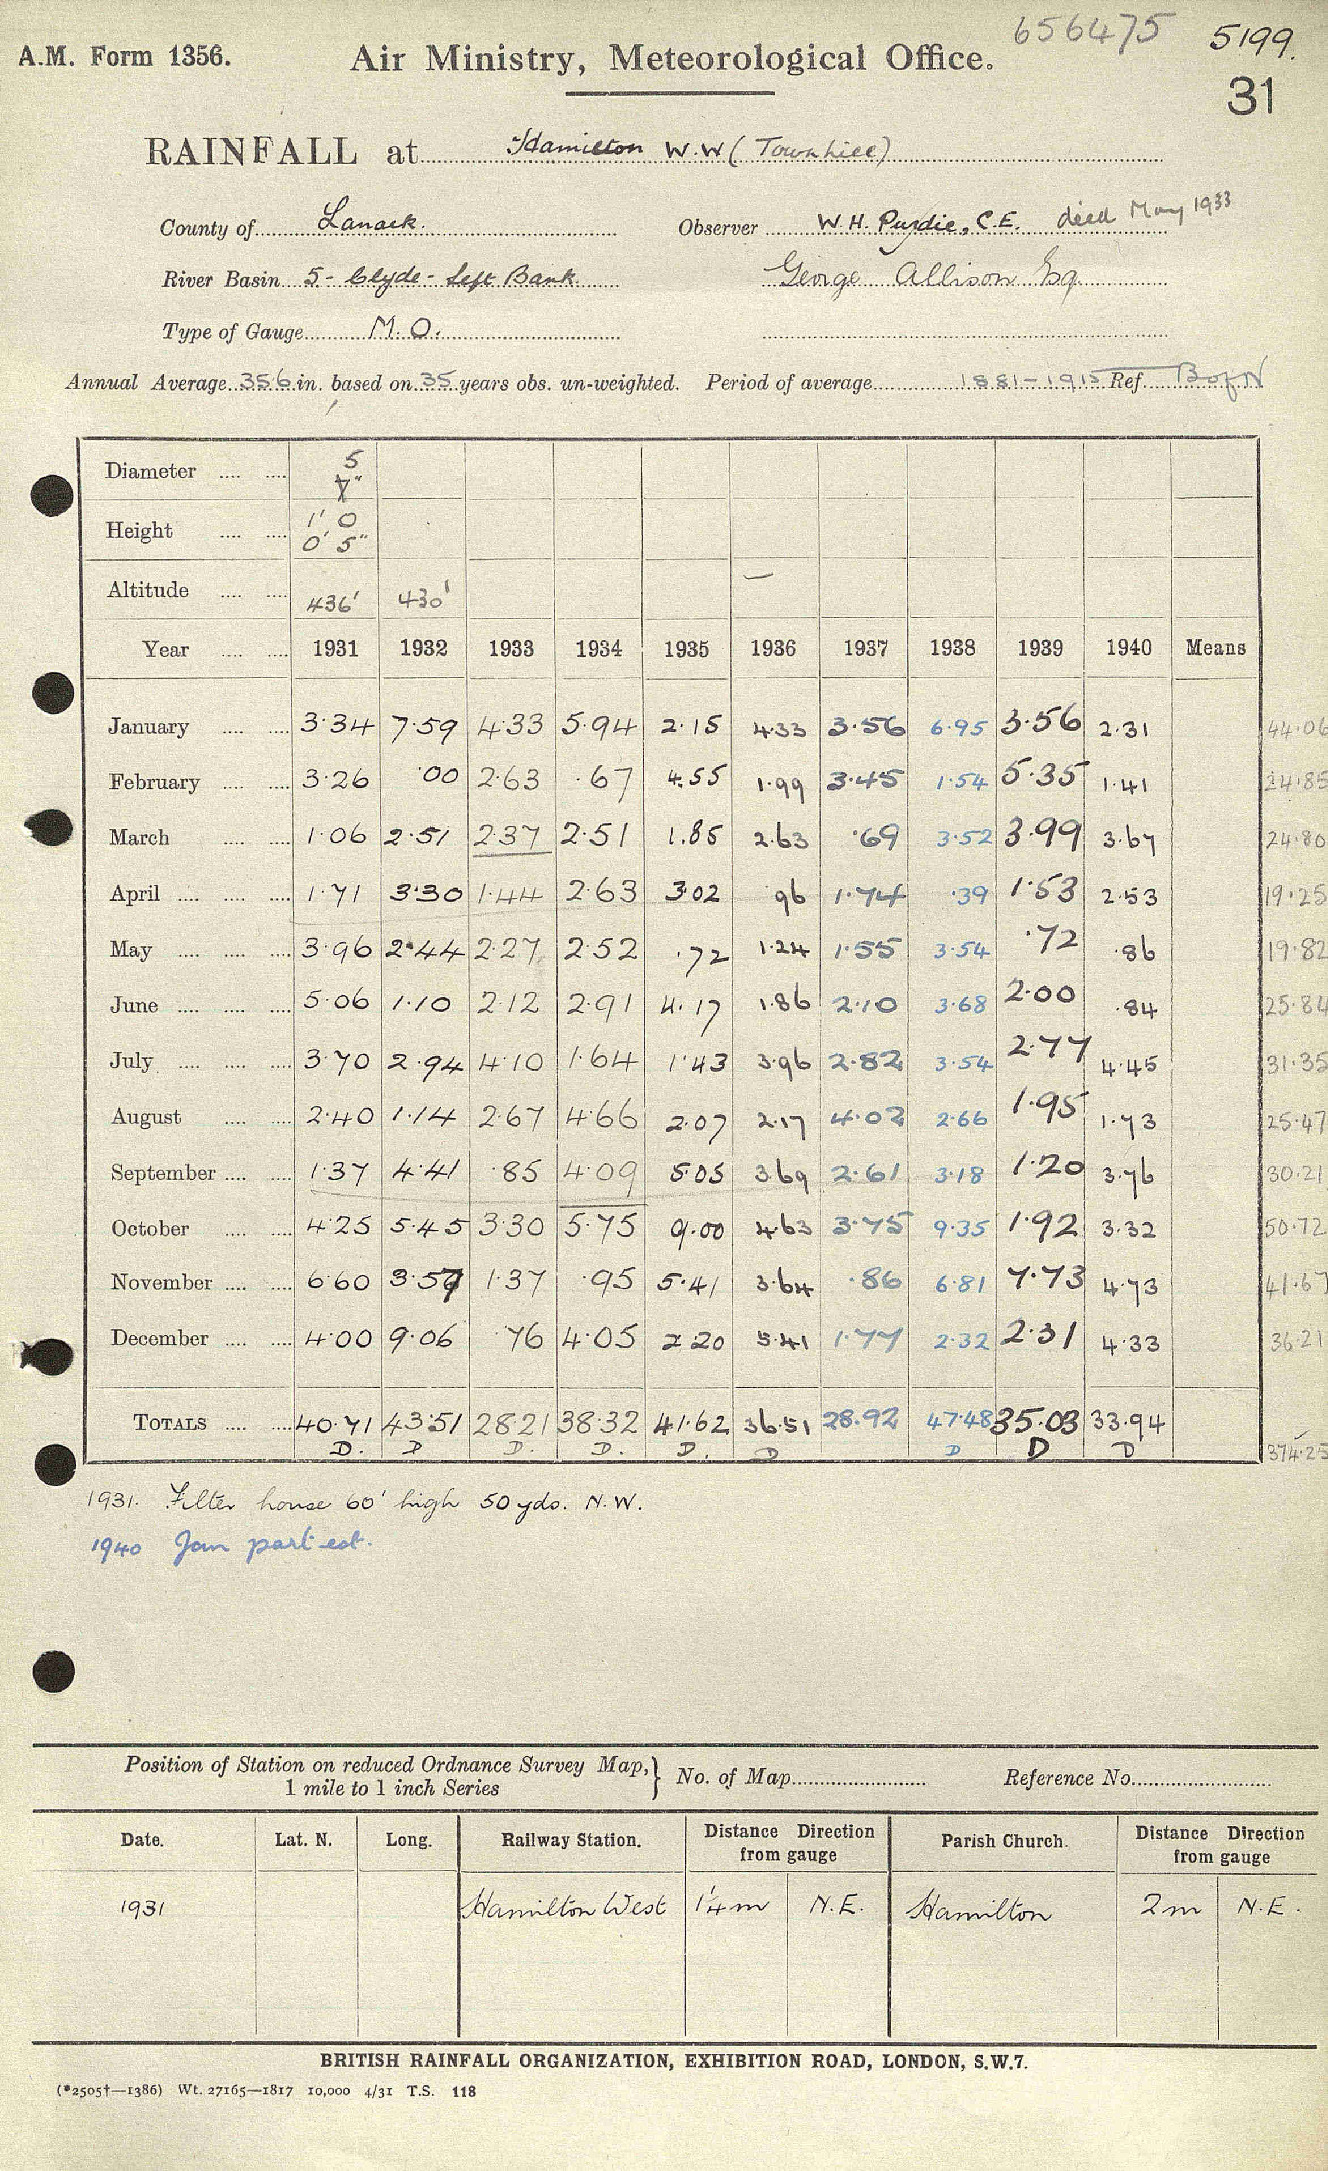 656475 5199.
A.M. Form 1356. Air Ministry, Meteorological Office.
31
RAINFALL at Hamilton W.W (Townhill)
County of Lanark. Observer W.H. Purdie, C.E. died May 1933
River Basin 5 - Clyde - Left Bank George Allison Esq.
Type of Gauge M.O.
Annual Average 35.6 in. based on 35 years obs. un-weighted. Period of average 1881-1915 Ref. B of N
Diameter 5
7"
Height 1' 0
0' 5"
Altitude 436' 430'
Year 1931 1932 1933 1934 1935 1936 1937 1938 1939 1940 Means
January 3.34 7.59 4.33 5.94 2.15 4.33 3.56 6.95 3.56 2.31 44.06
February 3.26 .00 2.63 .67 4.55 1.99 3.45 1.54 5.35 1.41 24.85
March 1.06 2.51 2.37 2.51 1.85 2.63 .69 3.52 3.99 3.67 24.80
April 1.71 3.30 1.44 2.63 3.02 96 1.74 .39 1.53 2.53 19.25
May 3.96 2.44 2.27 2.52 .72 1.24 1.55 3.54 .72 .86 19.82
June 5.06 1.10 2.12 2.91 4.17 1.86 2.10 3.68 2.00 .84 25.84
July 3.70 2.94 4.10 1.64 1.43 3.96 2.82 3.54 2.77 4.45 31.35
August 2.40 1.14 2.67 4.66 2.07 2.17 4.02 2.66 1.95 1.73 25.47
September 1.37 4.41 .85 4.09 5.05 3.69 2.61 3.18 1.20 3.76 30.21
October 4.25 5.45 3.30 5.75 9.00 4.63 3.75 9.35 1.92 3.32 50.72
November 6.60 3.57 1.37 .95 5.41 3.64 .86 6.81 7.73 4.73 41.67
December 4.00 9.06 .76 4.05 2.20 5.41 1.77 2.32 2.31 4.33 36.21
TOTALS 40.71 43.51 28.21 38.32 41.62 36.51 28.92 47.48 35.03 33.94
D. D D. D. D. D D D D 374.25
1931. Filter house 60' high 50 yds. N.W.
1940 Jan part est.
Position of Station on reduced Ordnance Survey Map,
1 mile to 1 inch Series } No. of Map Reference No.
Date. Lat. N. Long. Railway Station. Distance Direction from gauge Parish Church. Distance Direction from gauge
1931 Hamilton West 1¼m N.E. Hamilton 2m N.E.
BRITISH RAINFALL ORGANIZATION, EXHIBITION ROAD, LONDON, S.W.7.
(*2505†—1386) Wt. 27165—1817 10,000 4/31 T.S. 118